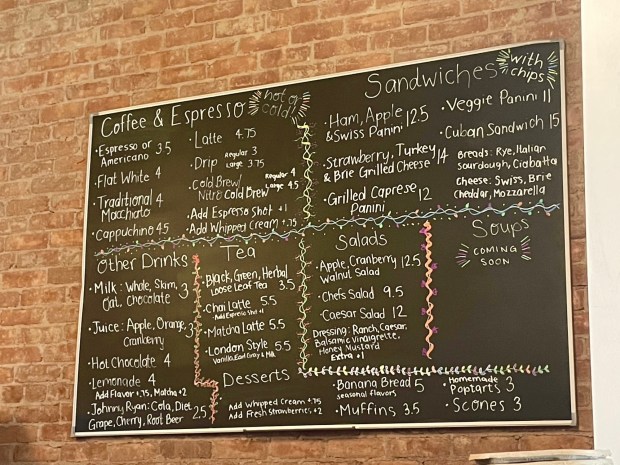 Coffee & Espresso
hot or
cold!
· Espresso or
Americano 3.5
· Flat White 4
· Traditional 4
Macchiato
· Cappuchino 4.5
· Latte 4.75
· Drip Regular 3
Large 3.75
· Cold Brew/ Regular 4
Nitro Cold Brew Large 4.5
Add Espresso Shot +1
Add Whipped Cream +.75
Sandwiches
with
chips
· Ham, Apple 12.5
& Swiss Panini
· Strawberry, Turkey 14
& Brie Grilled Cheese
· Grilled Caprese 12
Panini
· Veggie Panini 11
· Cuban Sandwich 15
Breads: Rye, Italian
Sourdough, Ciabatta
Cheese: Swiss, Brie
Cheddar, Mozzarella
Other Drinks
· Milk: Whole, Skim, 3
Oat, Chocolate
· Juice: Apple, Orange, 3
Cranberry
· Hot Chocolate 4
· Lemonade 4
Add Flavor +.75, Matcha +2
· Johnny Ryan: Cola, Diet, 2.5
Grape, Cherry, Root Beer
Tea
· Black, Green, Herbal 3.5
Loose Leaf Tea
· Chai Latte 5.5
Add Espresso Shot +1
· Matcha Latte 5.5
· London Style 5.5
Vanilla, Earl Grey & Milk
Salads
· Apple, Cranberry 12.5
Walnut Salad
· Chefs Salad 9.5
· Caesar Salad 12
Dressing: Ranch, Caesar,
Balsamic Vinaigrette,
Honey Mustard
Extra +1
Soups
COMING
SOON
Desserts
Add Whipped Cream +.75
Add Fresh Strawberries +2
· Banana Bread 5
seasonal flavors
· Muffins 3.5
· Homemade 3
Poptarts
· Scones 3